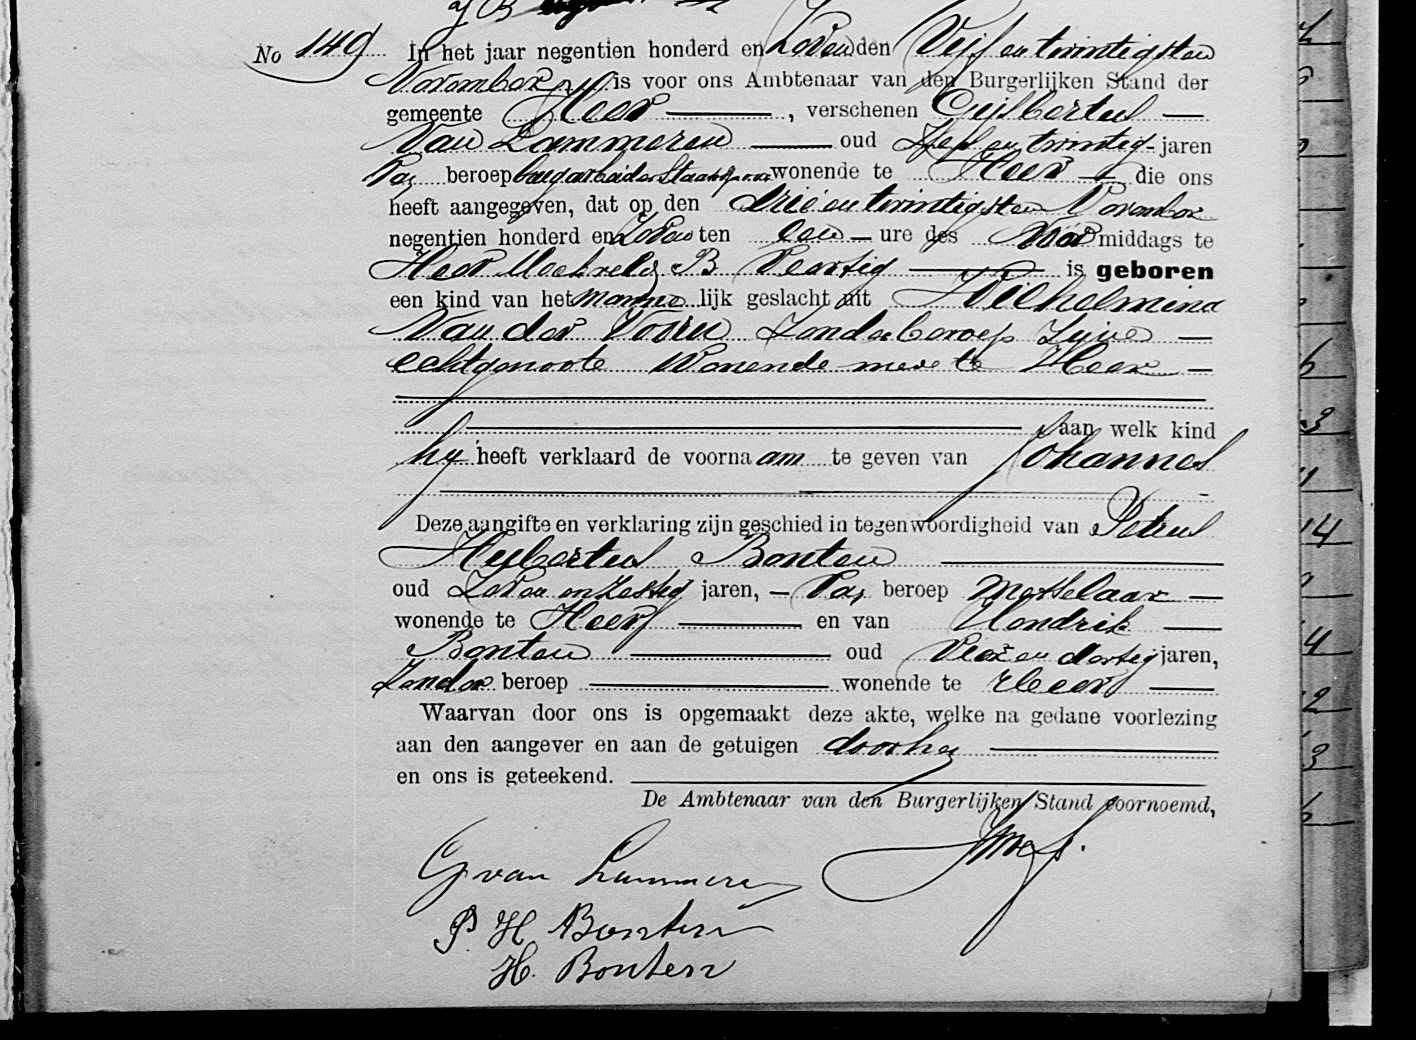 No 149 In het jaar negentien honderd en Zeven den Vijf en twintigsten
November is voor ons Ambtenaar van den Burgerlijken Stand der
gemeente Heer , verschenen Gijsbertus
Van Lammeren oud Zes en twintig jaren
Van beroep baanarbeider Staatsspoor wonende te Heer die ons
heeft aangegeven, dat op den drie en twintigsten November
negentien honderd en Zeven ten een ure des Voor middags te
Heer B Veertig is geboren
een kind van het manne lijk geslacht uit Wilhelmina
Van der Voorn Zonder beroep Zijne
echtgenoote Wonende mede te Heer
aan welk kind
hij heeft verklaard de voorna am te geven van Johannes
Deze aangifte en verklaring zijn geschied in tegenwoordigheid van Petrus
Hubertus Bonten
oud Zeven en Zestig jaren, Van beroep Metselaar
wonende te Heer en van Hendrik
Bonten oud Vier en dertig jaren,
Zonder beroep wonende te Heer
Waarvan door ons is opgemaakt deze akte, welke na gedane voorlezing
aan den aangever en aan de getuigen door hen
en ons is geteekend.
De Ambtenaar van den Burgerlijken Stand voornoemd,
G van Lammeren
P. H Bonten
H. Bonten